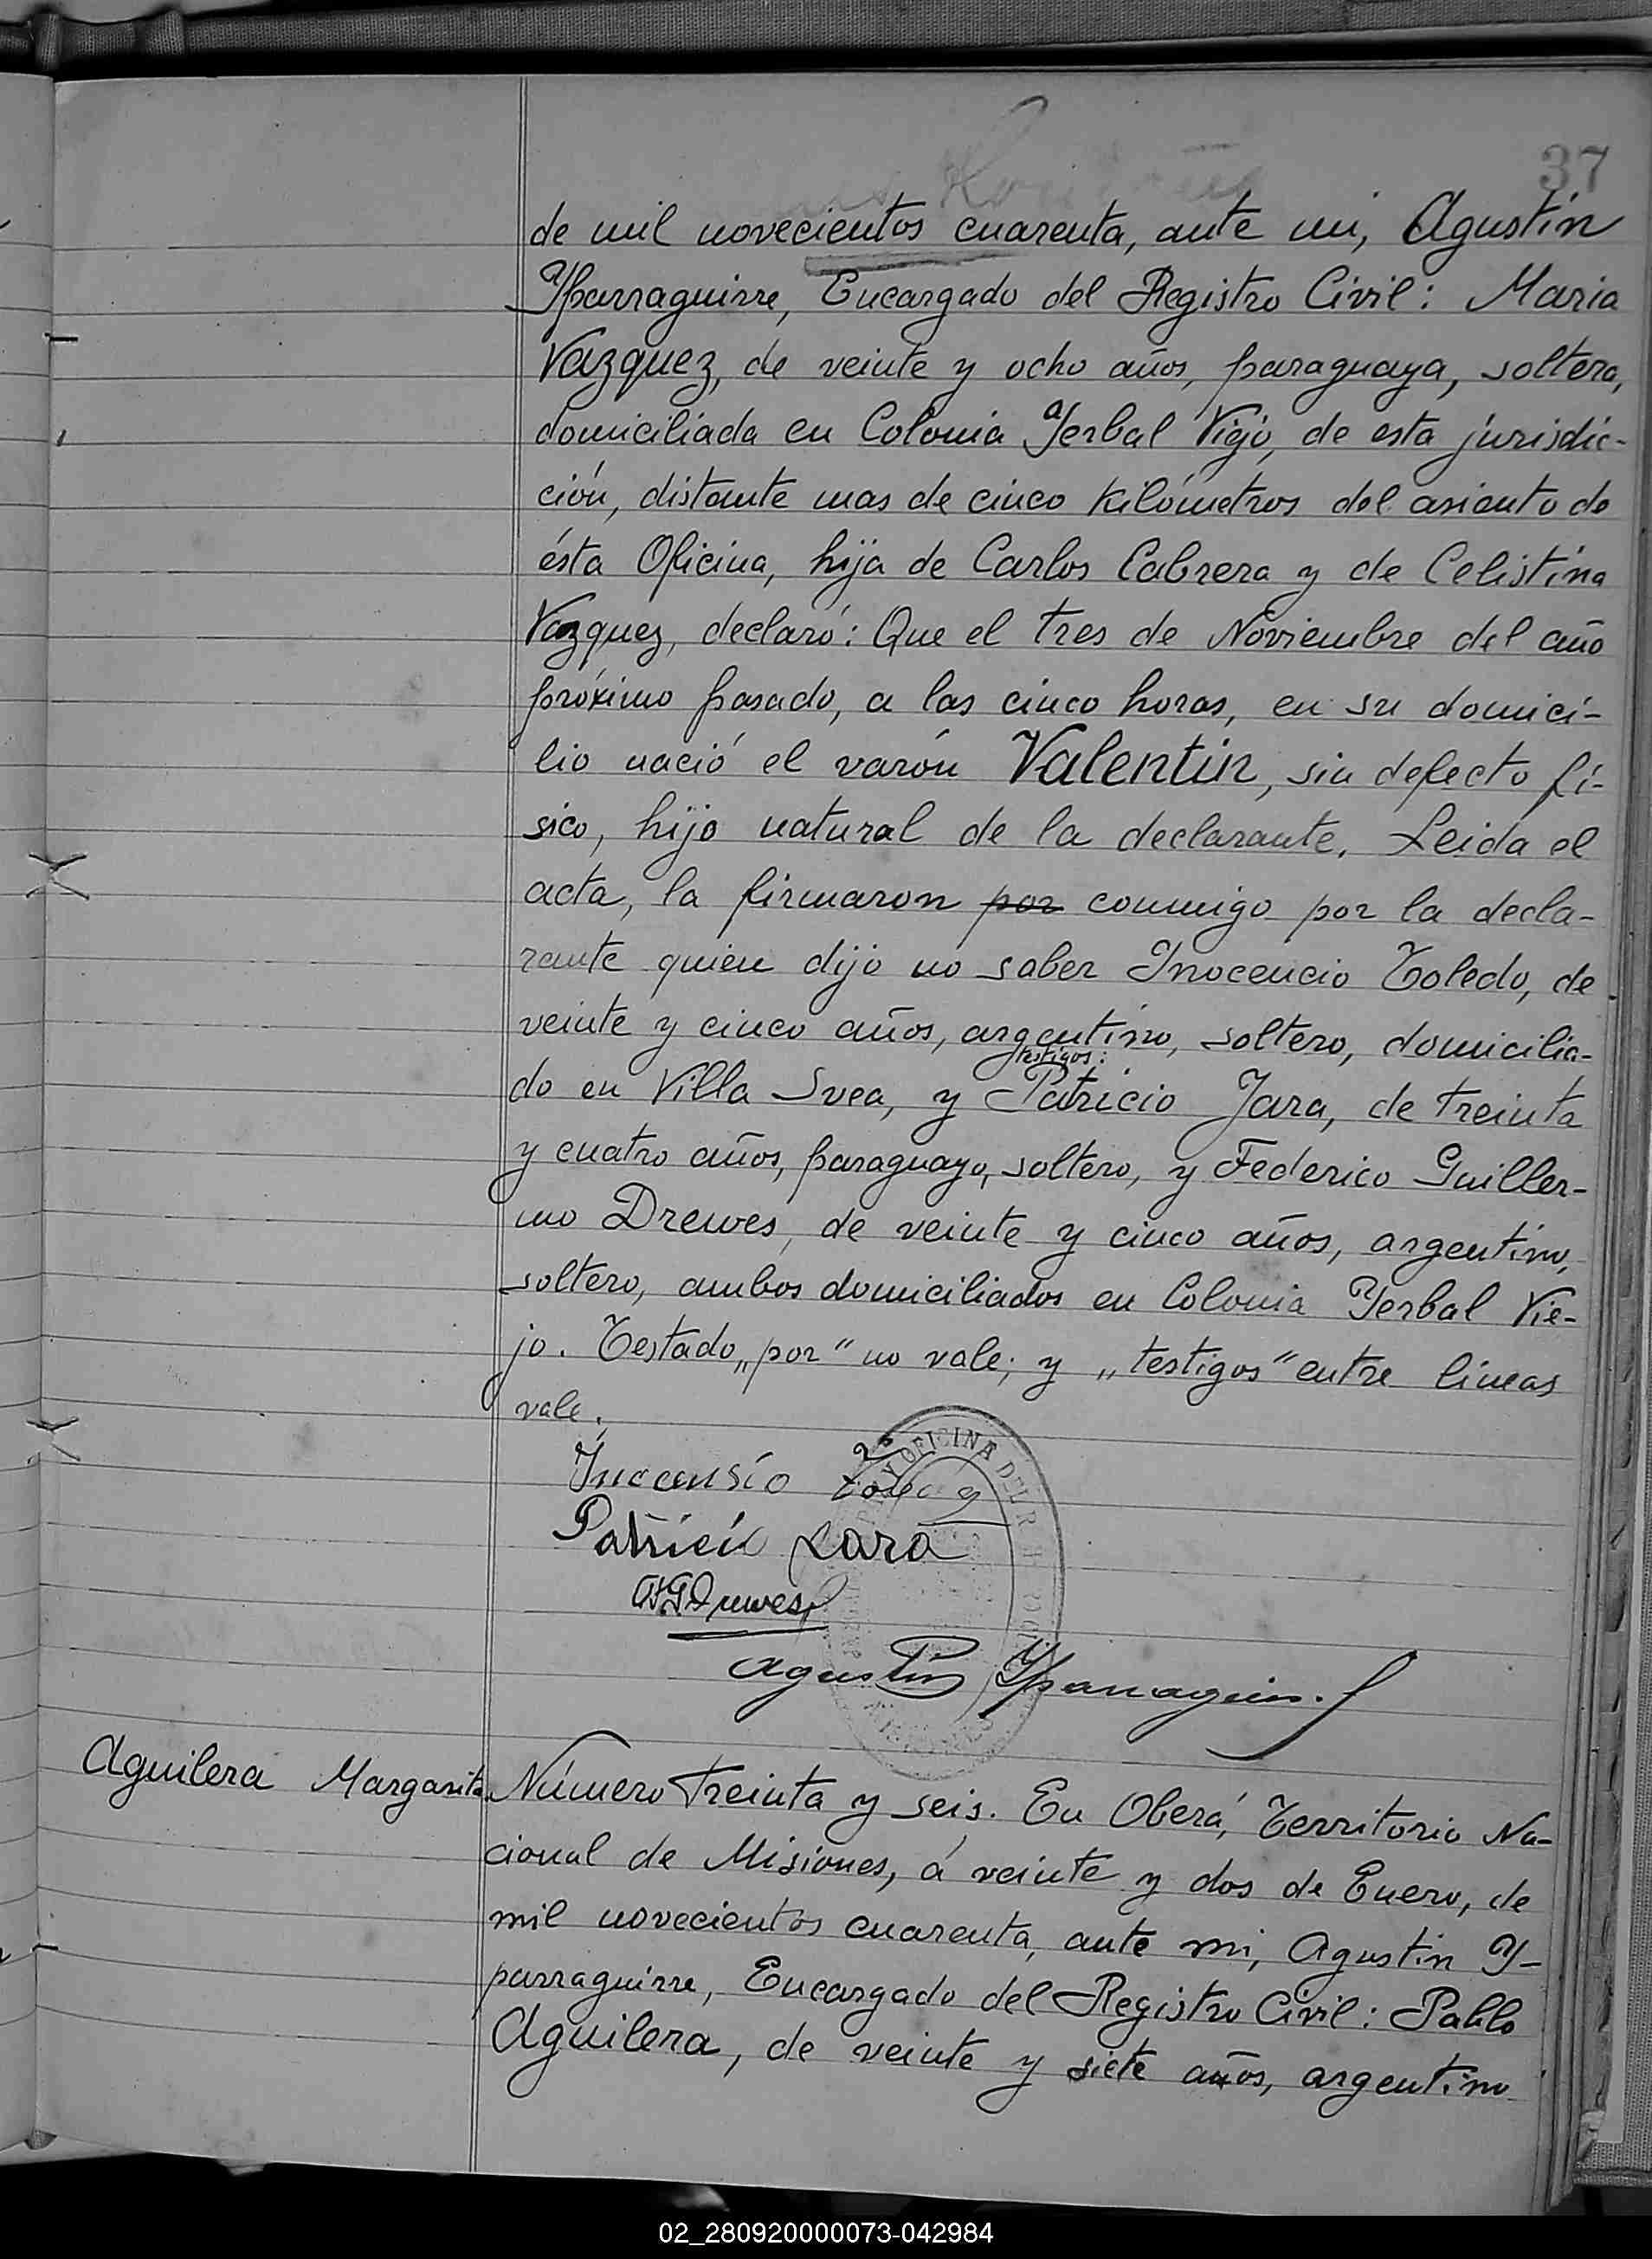 37
de mil novecientos cuarenta, ante mi, Agustín
Yparraguirre, Encargado del Registro Civil: Maria
Vazquez, de veinte y ocho años, paraguaya, soltera,
domiciliada en Colonia Yerbal Viejo, de esta jurisdic-
ción, distante mas de cinco kilómetros del asiento de
ésta Oficina, hija de Carlos Cabrera y de Celistina
Vazquez, declaró: Que el tres de Noviembre del año
próximo pasado, a las cinco horas, en su domici-
lio nació el varón Valentín, sin defecto fí-
sico, hijo natural de la declarante. Leida el
acta, la firmaron por conmigo por la decla-
rante quien dijo no saber Inocencio Toledo, de
veinte y cinco años, argentino, soltero, domicilia-
testigos:
do en Villa Svea, y Patricio Jara, de treinta
y cuatro años, paraguayo, soltero, y Federico Guiller-
mo Drewes, de veinte y cinco años, argentino,
soltero, ambos domiciliados en Colonia Yerbal Vie-
jo. Testado „por“ no vale; y „testigos“ entre líneas
vale.
OFICINA DEL
Inocensio
Patricio Jara
Drewes
Agustín Yparraguirre
MISIONES
Aguilera Margarita
Número treinta y seis. En Oberá, Territorio Na-
cional de Misiones, á veinte y dos de Enero, de
mil novecientos cuarenta, ante mi, Agustín Y-
parraguirre, Encargado del Registro Civil: Pablo
Aguilera, de veinte y siete años, argentino
02_280920000073-042984